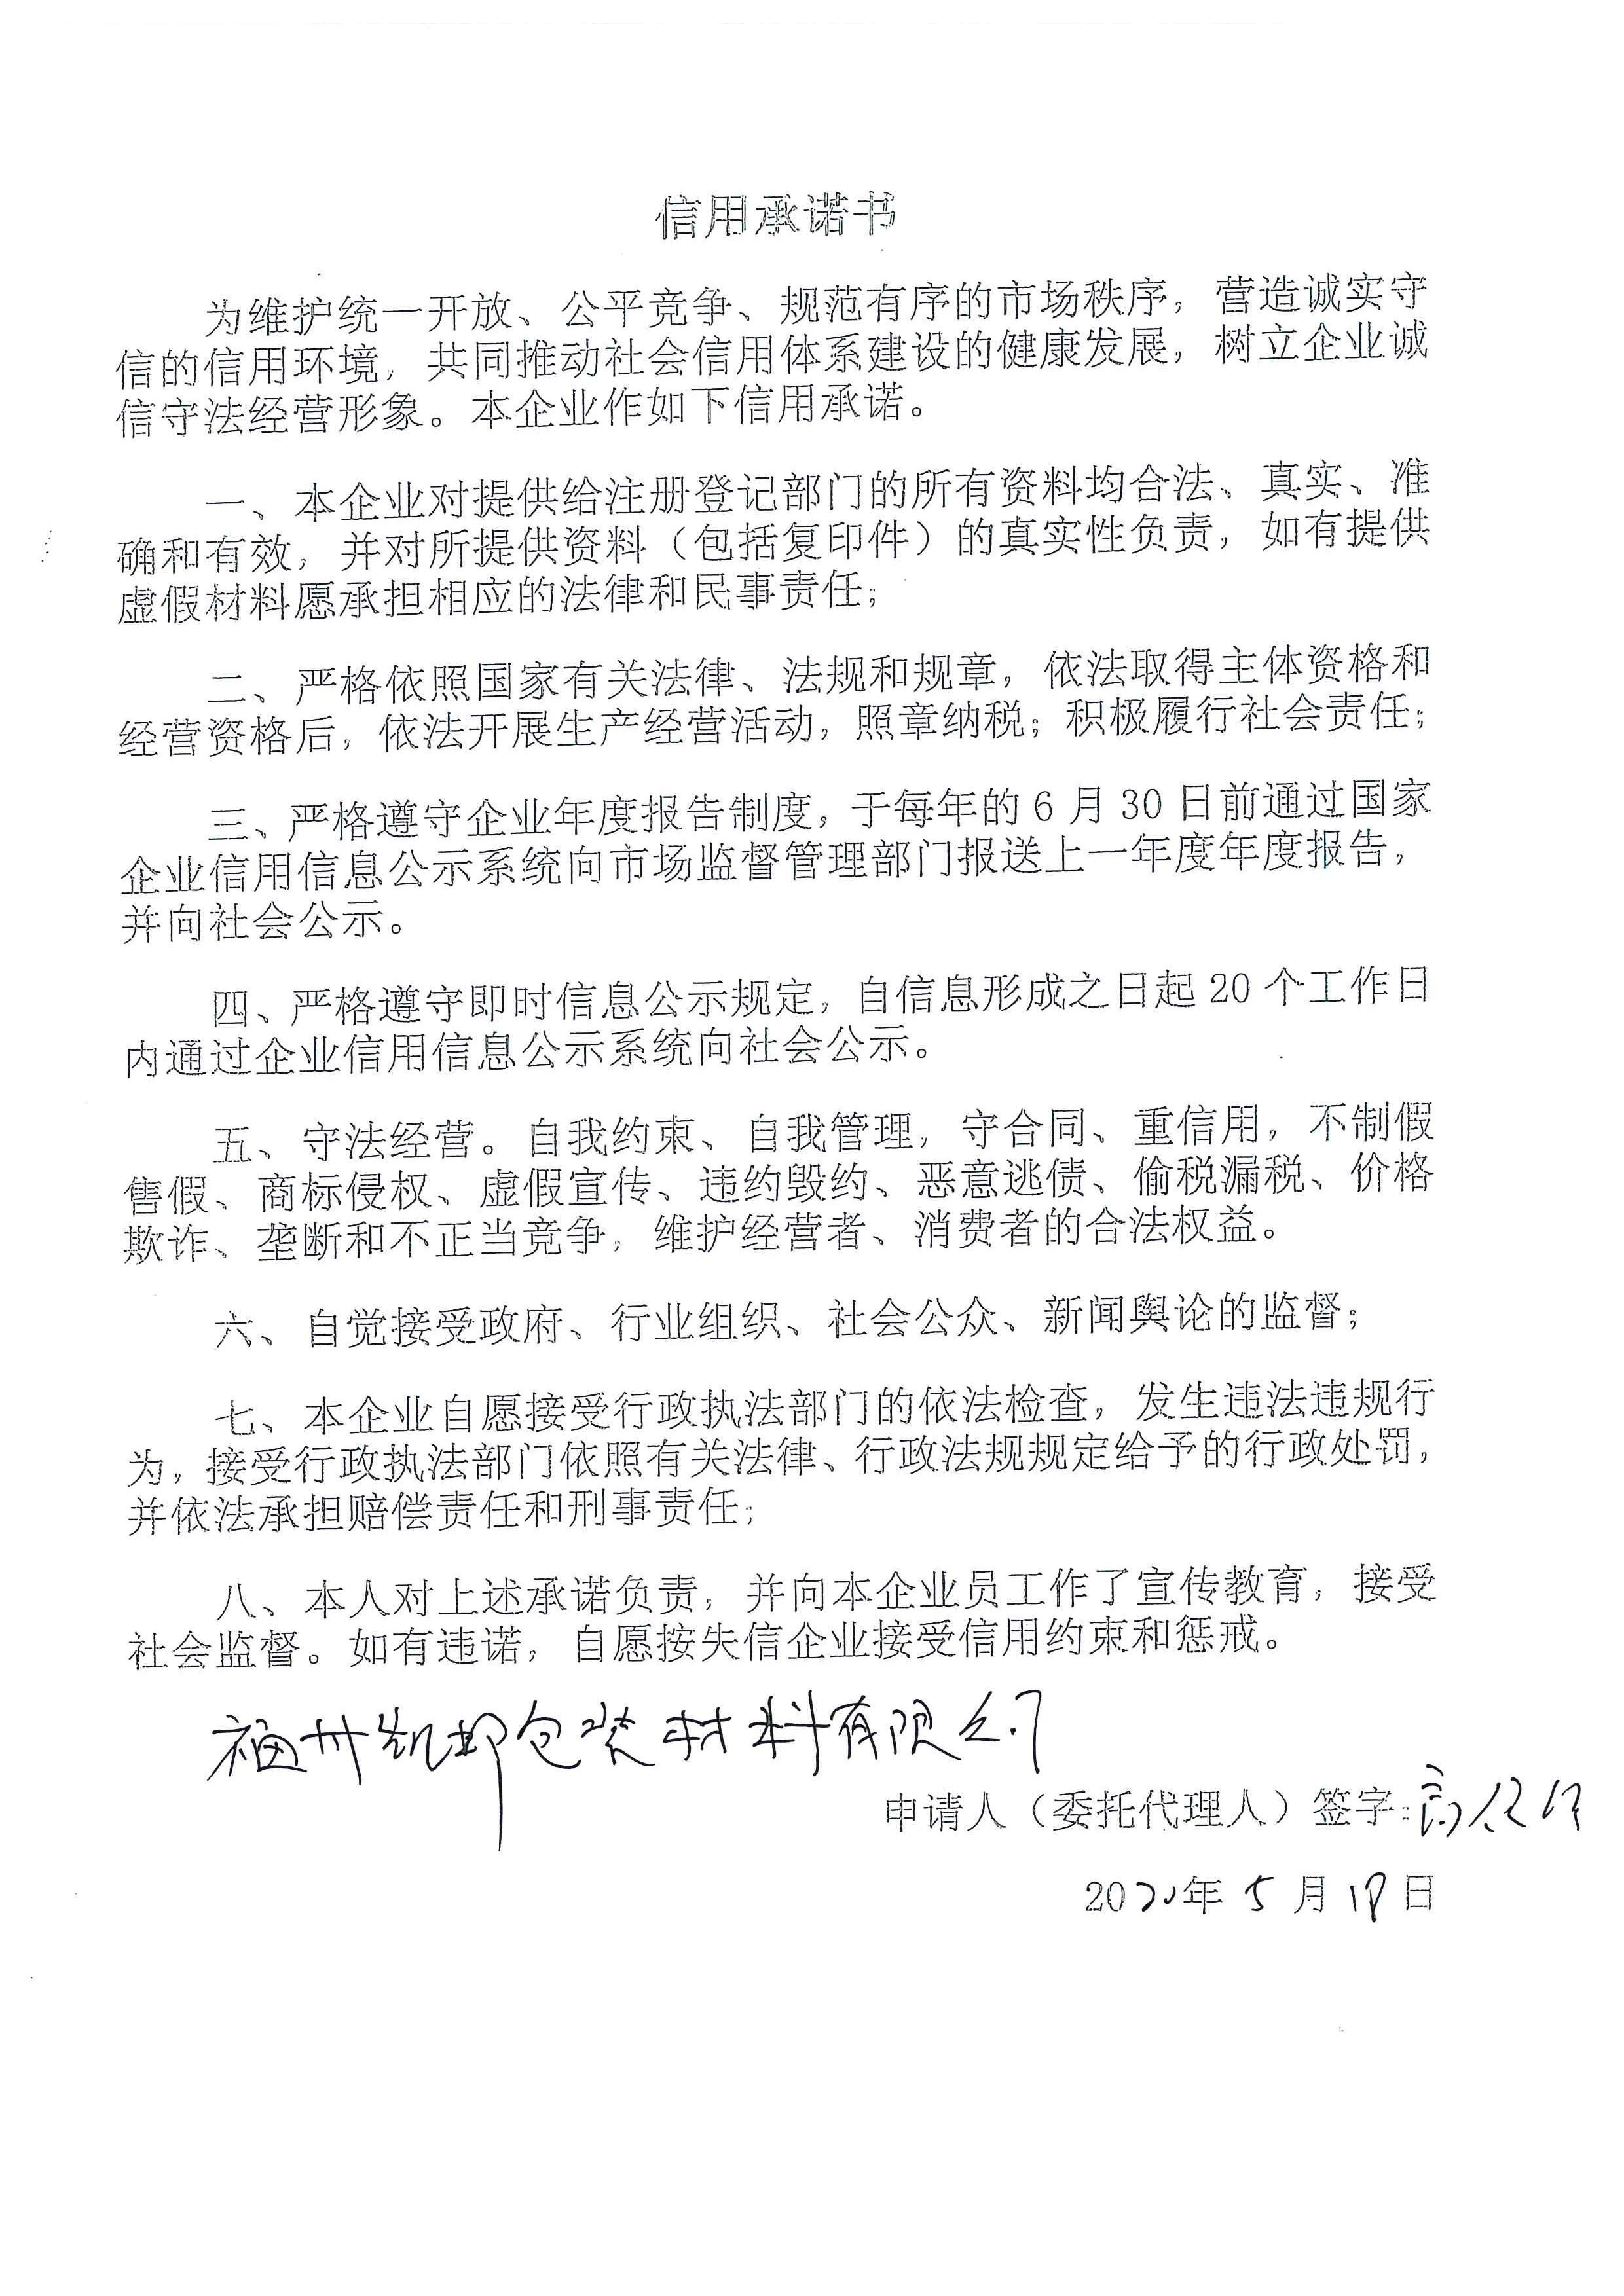 信用承诺书
为维护统一开放、公平竞争、规范有序的市场秩序，营造诚实守
信的信用环境，共同推动社会信用体系建设的健康发展，树立企业诚
信守法经营形象。本企业作如下信用承诺。
一、本企业对提供给注册登记部门的所有资料均合法、真实、准
确和有效，并对所提供资料（包括复印件）的真实性负责，如有提供
虚假材料愿承担相应的法律和民事责任；
二、严格依照国家有关法律、法规和规章，依法取得主体资格和
经营资格后，依法开展生产经营活动，照章纳税；积极履行社会责任；
三、严格遵守企业年度报告制度，于每年的6月30日前通过国家
企业信用信息公示系统向市场监督管理部门报送上一年度年度报告，
并向社会公示。
四、严格遵守即时信息公示规定，自信息形成之日起20个工作日
内通过企业信用信息公示系统向社会公示。
五、守法经营。自我约束、自我管理，守合同、重信用，不制假
售假、商标侵权、虚假宣传、违约毁约、恶意逃债、偷税漏税、价格
欺诈、垄断和不正当竞争，维护经营者、消费者的合法权益。
六、自觉接受政府、行业组织、社会公众、新闻舆论的监督；
七、本企业自愿接受行政执法部门的依法检查，发生违法违规行
为，接受行政执法部门依照有关法律、行政法规规定给予的行政处罚，
并依法承担赔偿责任和刑事责任；
八、本人对上述承诺负责，并向本企业员工作了宣传教育，接受
社会监督。如有违诺，自愿按失信企业接受信用约束和惩戒。
福州凯邦包装材料有限公司
申请人（委托代理人）签字：
2020年5月18日